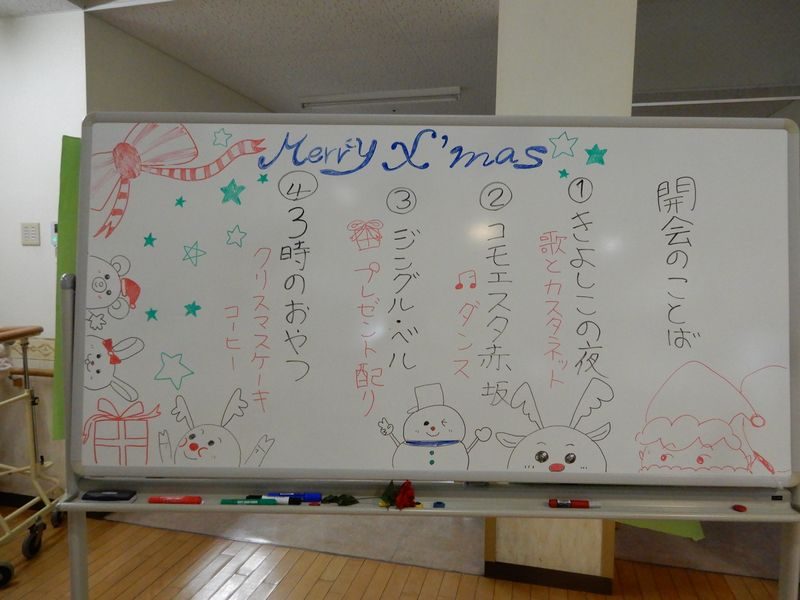 Merry X'mas
開会のことば
①きよしこの夜
歌とカスタネット
②コモエスタ赤坂
♫ダンス
③ジングル・ベル
プレゼント配り
④3時のおやつ
クリスマスケーキ
コーヒー